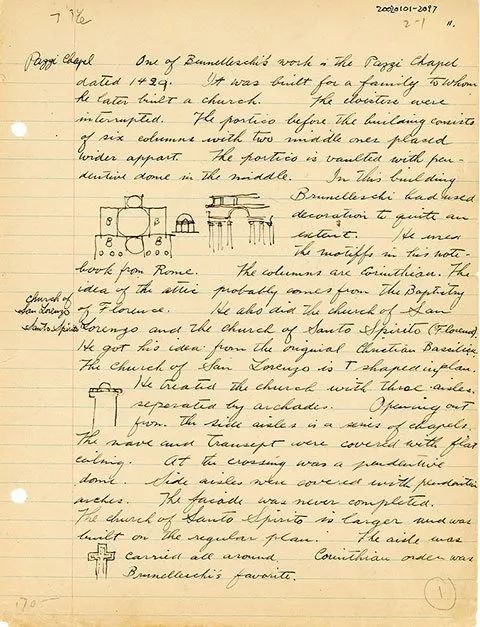 20020101-2097
2-1
11.
Pazzi Chapel
One of Brunelleschi's work is the Pazzi Chapel
dated 1429. It was built for a family to whom
he later built a church. The cloisters were
interrupted. The portico before the building consists
of six columns with two middle ones placed
wider appart. The portico is vaulted with pen-
dentive dome in the middle. In this building
Brunelleschi had used
decoration to quite an
extent. He used
the motiffs in his note-
book from Rome. The columns are Corinthian. The
idea of the attic probably comes from the Baptistry
of Florence. He also did the church of San
Church of
San Lorenzo
Santo Spirito
Lorenzo and the church of Santo Spirito (Florence).
He got his idea from the original Christian Basilica.
The Church of San Lorenzo is T shaped in plan.
He treated the church with three aisles
seperated by archades. Opening out
from the side aisles is a series of chapels.
The nave and transept were covered with flat
ceiling. At the crossing was a pendentive
dome. Side aisles were covered with pendentive
arches. The facade was never completed.
The church of Santo Spirito is larger and was
built on the regular plan. The aisle was
carried all around Corinthian order was
Brunelleschi's favorite.
B
B
B
B
170-
1